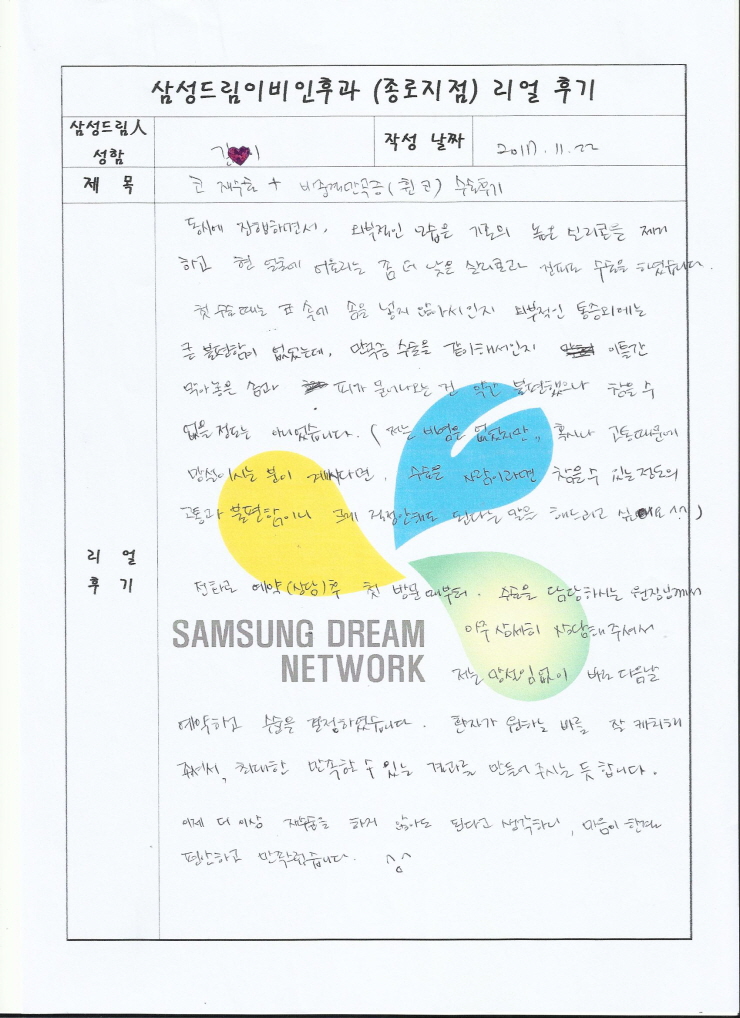 삼성드림이비인후과 (종로지점) 리얼 후기
삼성드림人 성함
김 이
작성 날짜
2017. 11. 22
제 목
코 재수술 + 비중격만곡증(휜 코) 수술후기
리 얼 후 기
동시에 진행하면서, 외부적인 모습은 기존의 높은 실리콘을 제거
하고 현 얼굴에 어울리는 좀 더 낮은 실리콘과 진피로 수술을 하였습니다.
첫 수술때는 코 속에 솜을 넣지 않아서인지 외부적인 통증외에는
큰 불편함이 없었는데, 만곡증 수술을 같이해서인지 이틀간
막아놓은 솜과 피가 묻어나오는 건 약간 불편했으나 참을 수
없을 정도는 아니었습니다. (저는 비염은 없었지만, 혹시나 고통때문에
망설이시는 분이 계신다면, 수술을 사람이라면 참을 수 있는 정도의
고통과 불편함이니 크게 걱정안해도 된다는 말을 해드리고 싶어요 ^^)
전화로 예약(상담)후 첫 방문때부터, 수술을 담당하시는 원장님께서
아주 상세히 상담해주셔서
SAMSUNG DREAM
저는 망설임없이 바로 다음날
NETWORK
예약하고 수술을 결정하였습니다. 환자가 원하는 바를 잘 캐치해
주셔서, 최대한 만족할 수 있는 결과를 만들어 주시는 듯 합니다.
이제 더 이상 재수술을 하지 않아도 된다고 생각하니, 마음이 한결
편안하고 만족스럽습니다. ^^